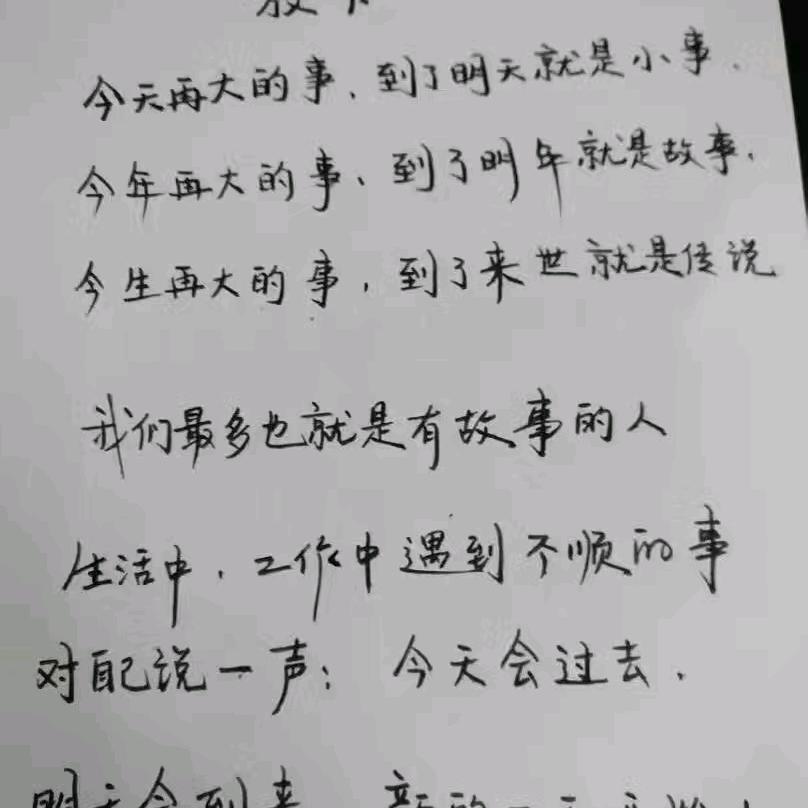 今天再大的事、到了明天就是小事.
今年再大的事、到了明年就是故事.
今生再大的事,到了来世就是传说
我们最多也就是有故事的人
生活中.工作中遇到不顺的事
对自己说一声: 今天会过去.
明天会到来